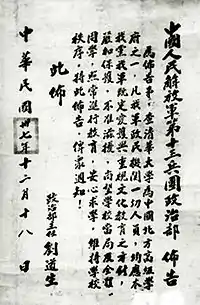 中國人民解放軍第十三兵團政治部 佈告
為佈告事，查清華大學為中國北方高級學
府之一，凡我軍政民機關一切人員，均應本
我黨我軍既定愛護與重視文化教育之方針，
嚴加保護，不准滋擾，尚望學校當局及全體
同學，照常進行教育，安心求學，維持學校
秩序。特此佈告，俾衆週知！
此佈
政治部主任 劉道生
中華民國卅七年十二月十八日